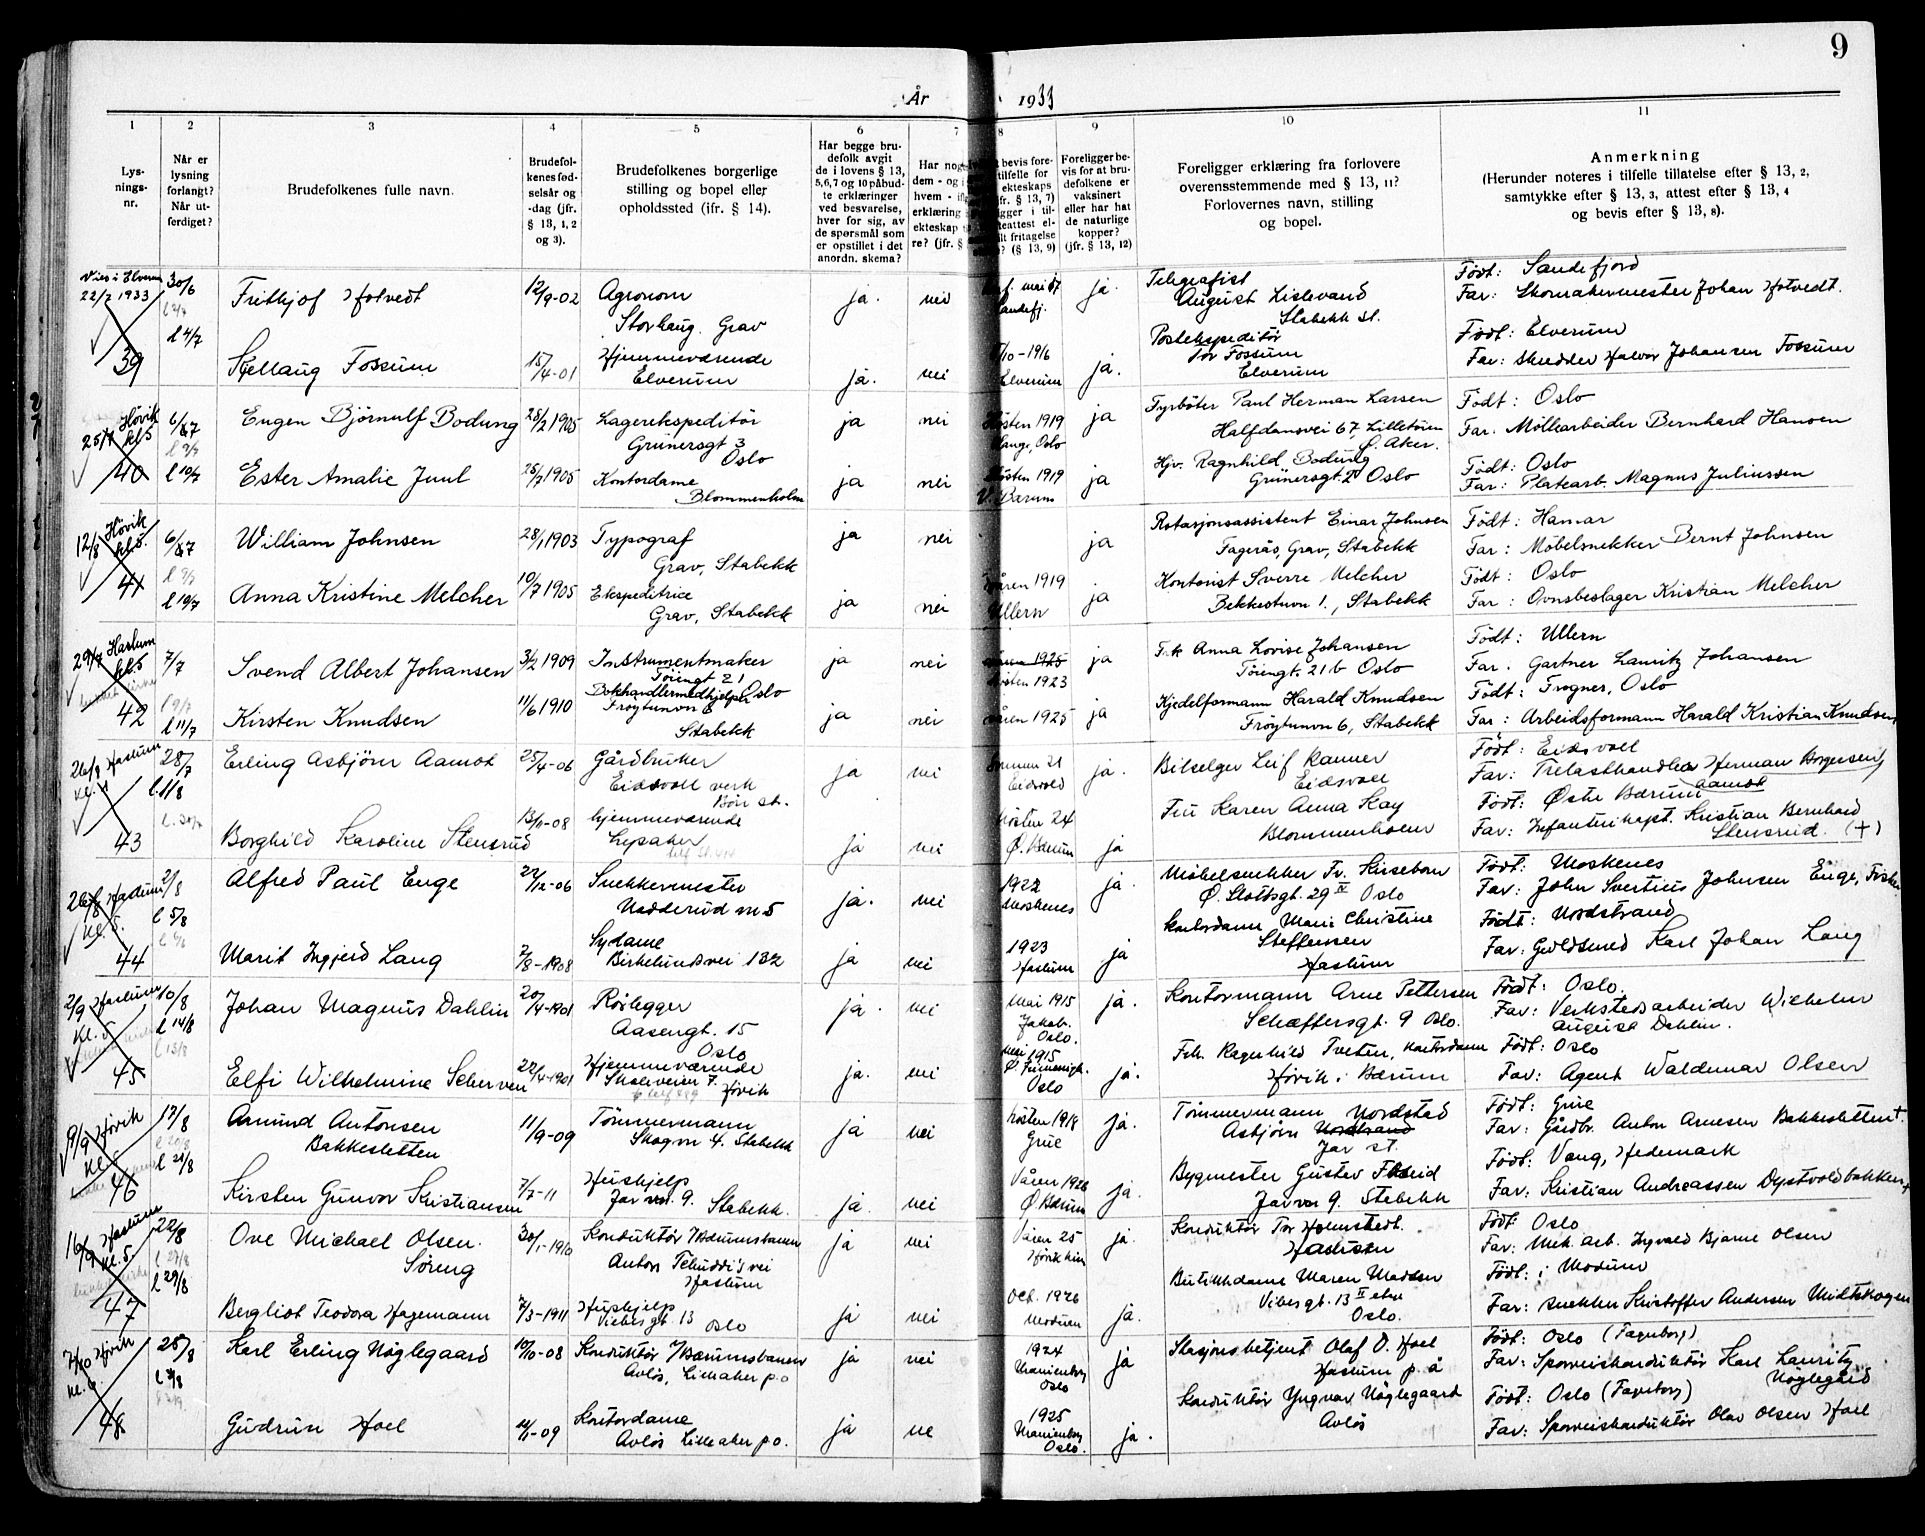 9
År 1933
1 2 3 4 5 6 7 8 9 10 11
Lys-
nings-
nr.
Når er
lysning
forlangt?
Når ut-
ferdiget?
Brudefolkenes fulle navn.
Brudefol-
kenes fød-
selsår og
-dag (jfr.
§ 13, 1, 2
og 3).
Brudefolkenes borgerlige
stilling og bopel eller
opholdssted (ifr. § 14).
Har begge bru-
defolk avgit
de i lovens § 13,
5, 6, 7 og 10 påbud-
te erklæringer
ved besvarelse,
hver for sig, av
de spørsmål som
er opstillet i det
anordn. skema?
Foreligger be-
vis for at bru-
defolkene er
vaksinert
eller har hat
de naturlige
kopper?
(jfr. § 13, 12)
Foreligger erklæring fra forlovere
overensstemmende med § 13, 11?
Forlovernes navn, stilling
og bopel.
Anmerkning
(Herunder noteres i tilfelle tillatelse efter § 13, 2,
samtykke efter § 13, 3, attest efter § 13, 4
og bevis efter § 13, 8).
Vies i Elverum
22/7 1933
39
30/6
l 4/7
Frithjof Hotvedt
12/9-02
Agronom
Storhaug. Grav
ja. nei
ja.
Telegrafist
August Lislevand
Stabekk st.
Født: Sandefjord
Far: Skomakermester Johan Hotvedt.
Fossum
15/4-01
Hjemmeværende
Elverum
ja. nei
Elverum
ja.
Postekspeditør
Tor Fossum
Elverum
Født: Elverum
Far: Skredder Halvor Johansen Fossum
25/7 Høvik
kl 5
40
l 10/7
Eugen Bjørnulf Bodung
28/2 1905
Lagerekspeditør
Grünersgt 3
Oslo
ja nei
Høsten 1919
ja
Fyrbøter Paul Herman Larsen
Halfdansvei 67, Lilletøien
Ø. Aker.
Født: Oslo
Far. Møllearbeider Bernhard Hansen
Ester Amalie Juul
25/7 1905
Kontordame
Blommenholm
ja nei
Høsten 1919
V. Bærum
ja
Hjv. Ragnhild Bodung
Grünersgt. 2 Oslo
Født: Oslo
Far: Platearb. Magnus Juliussen
12/8 Høvik
kl 5.
41
l 10/7
William Johnsen
28/1 1903
Typograf
Grav, Stabekk
ja nei
ja
Rotasjonsassistent Einar Johnsen
Fagerås, Grav, Stabekk
Født: Hamar
Far: Møbelsnekker Bernt Johnsen
Anna Kristine Melcher
10/7 1905
Ekspeditrice
Grav, Stabekk
ja nei
Våren 1919
Ullern
ja
Kontorist Sverre Melcher
Bekkestuvn 1., Stabekk
Født: Oslo
Far: Ovnsbeslager Kristian Melcher
29/7 Haslum
kl 5
42
7/7
l 11/7
Svend Albert Johansen
3/2 1909
Instrumentmaker
Tøiengt 21
Oslo
ja nei
Våren 1925
Høsten 1923
ja
Frk Anna Lovise Johansen
Tøiengt. 21b Oslo
Født: Ullern
Far. Gartner Lauritz Johansen
Kirsten Knudsen
11/6 1910
Bokhandlermedhjelper
Frøytunvn 6
Stabekk
ja nei
Våren 1925
ja
Kjedelformann Harald Knudsen
Frøytunvn 6, Stabekk
Født: Frogner, Oslo
Far: Arbeidsformann Harald Kristian Knudsen
26/8 Haslum
43
28/7
l. 11/8
Erling Asbjørn Aamot
25/4-06
Gårdbruker
Eidsvoll verk
Bøn st.
ja nei
Sommer 21
Eidsvold
ja.
Bilselger Leif Ranner
Eidsvoll
Født: Eidsvoll
Far: Trelasthandler Herman Borgersen
Aamot
Borghild Karoline Stensrud
13/11-08
hjemmeværende
Lysaker
ja nei
Høsten 24
Ø. Bærum
ja
Fru Karen Anna Skay
Blommenholm
Født: Østre Bærum
Far: Infanterikapt. Kristian Bernhard
Stensrud. (+)
26/8 Haslum
kl. 5.
44
2/8
l 5/8
Alfred Paul Enge
27/12-06
Snekkermester
Nadderud vn 5
ja. nei
1922
Moskenes
ja.
Møbelsnekker Fr. Kirseborn
Ø. Slottsgt. 29 IV Oslo
Født: Moskenes
Far: John Svertius Johnsen Enge, Fisker
Marit Ingjerd Lang
2/8-1908
Sydame
Birkelundsvei 132
ja nei
1923
Haslum
ja
Kontordame Marie Christine
Steffensen
Haslum
Født: Nordstrand
Far: Guldsmed Karl Johan Lang
2/9 Haslum
kl. 5
45
10/8
l 14/8
l 15/8
Johan Magnus Dahlin
20/4-1901
Rørlegger
Aasengt. 15
Oslo
ja. nei
Mai 1915
Jakob.
Oslo.
ja.
Kontormann Arne Pettersen
Schæffersgt. 9 Oslo.
Født: Oslo.
Far: Verkstedsarbeider Wilhelm
August Dahlin.
Elfi Wilhelmine Scherven
22/4-1901
Hjemmeværende
Skoleveien 7.
Høvik
ja. nei
Mai 1915
Oslo
ja.
Frk. Ragnhild Tveten, Kontordame
Høvik i Bærum
Født: Oslo
Far: Agent Waldemar Olsen
9/9 Høvik
46
17/8
l 21/8
Amund Antonsen
Bakkesletten
11/9-09
Tømmermann
Skogvn 4. Stabekk
ja nei
Høsten 1918
Grue
ja.
Tømmermann Nordstad
Asbjørn Nordstrand
Jar st.
Født: Grue
Far: Gårdbr. Anton Arnesen Bakkesletten+.
Kirsten Gunvor Kristiansen
7/7-11
Hushjelp
Jar vn. 9. Stabekk.
ja. nei
Våren 1926
Ø. Bærum
ja.
Bygmester Gustav Flaseid
Jarvn 9. Stabekk
Født: Vang, Hedemark
Far: Kristian Andreassen Dystvoldbakken+
16/9 Haslum
kl. 5.
47
22/8
l 29/8
Ove Michael Olsen.
Söreng
30/1-1910
Konduktør Bærumsbanen
Anton Tschuddi's vei
Haslum
ja nei
Våren 25
ja.
Konduktør Tor Holmstedt.
Haslum
Født: Oslo
Far: Mek. arb. Ingvald Bjarne Olsen
Bergliot Teodora Hagemann
7/3-1911
Hushjelp
Vibesgt. 13 Oslo
ja nei
Oct. 1926
Modum
ja.
Butikkdame Maren Madsen
Vibesgt. 13 II etg
Oslo.
Født: i Modum
Far: Snekker Kristoffer Andersen Midtskogen
7/10 Høvik
48
25/8
Karl Erling Nøglegaard
10/10-08
Konduktør Bærumsbanen
Avløs, Lilleaker p.o
ja nei
1924
Uranienborg
Oslo
ja
Stasjonsbetjent Olaf O. Hoel
Haslum p.å
Født: Oslo (Fagerborg)
Far: Sporveiskonduktør Karl Lauritz
Nøglegård
Gudrun Hoel
-09
Kontordame
Avløs Lilleaker p.o.
ja
1925
Uranienborg
Oslo.
ja.
Konduktør Yngvar Nøglegaard
Avløs
Født: Oslo (Fagerborg)
Far: Sporveiskonduktør Olav Olsen Hoel